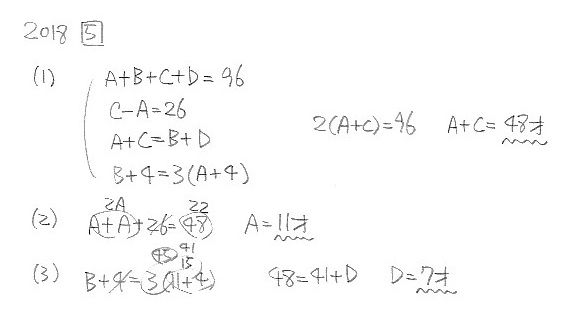 2018 5
(1) A+B+C+D=96
C-A=26
A+C=B+D
2(A+C)=96 A+C=48才
B+4=3(A+4)
2A 22
(2) A+A+26=48 A=11才
45 41
15
(3) B+4=3(11+4) 48=41+D D=7才